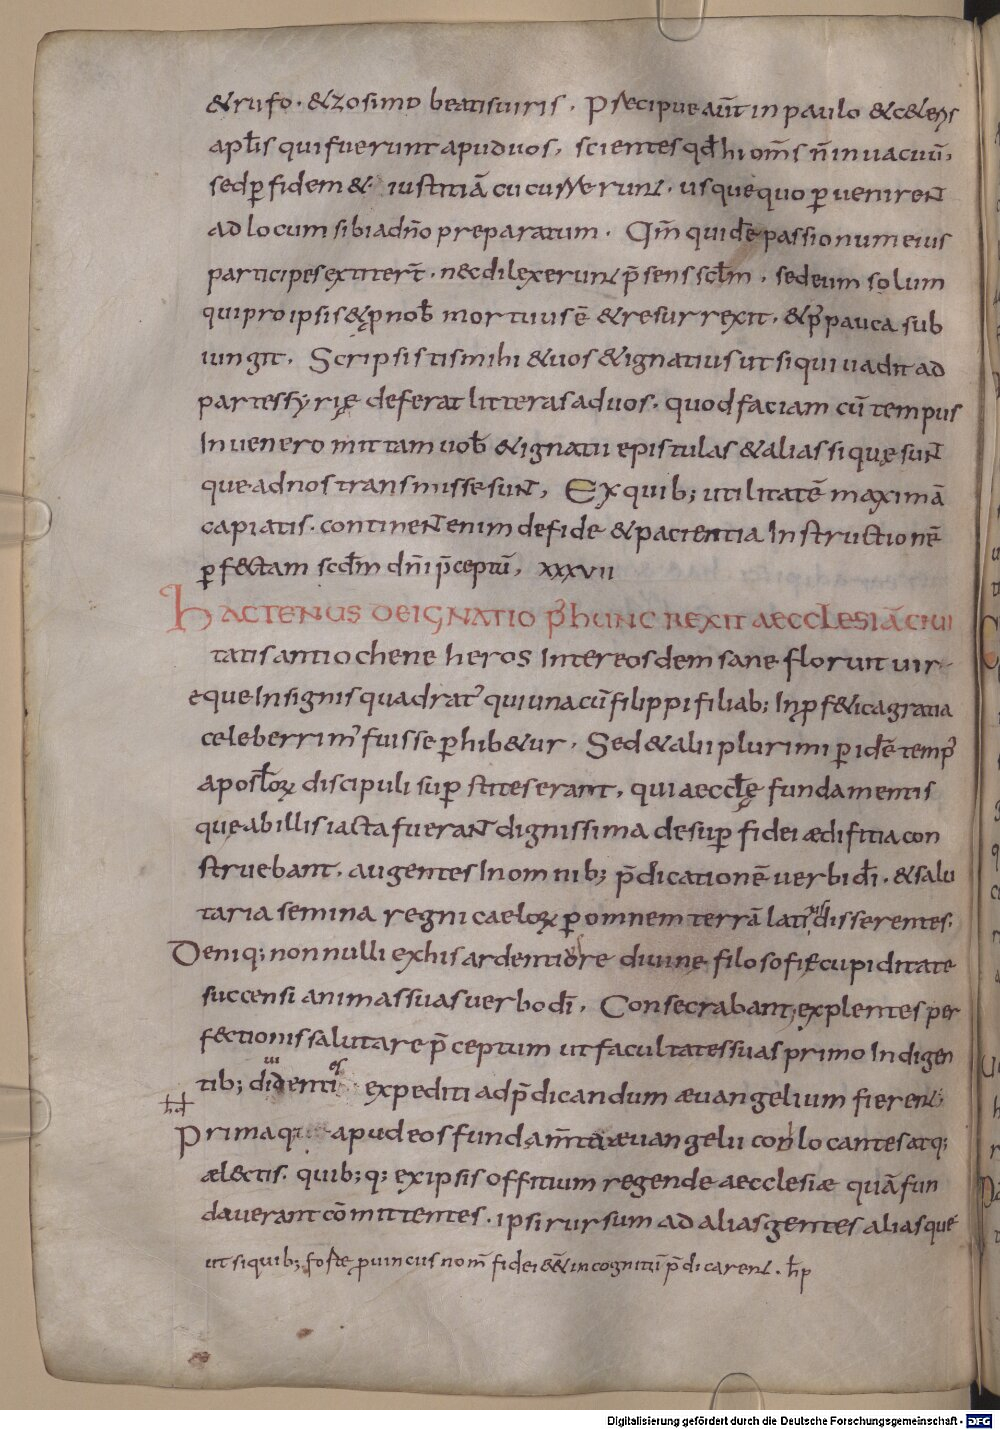 & rufo · & zosimo beatis uiris . Praecipue aūt in paulo & c&eris
aplis qui fuerunt apud uos , scientes qđ hi om̄s n̄ in uacuū ,
sed p̱ fidem & iustitiā cucurrerunt . usquequo p̱uenirent
ad locum sibi a dn̄o preparatum . Qm̄ quidē passionum eius
participes extiterт̄ . nec dilexerunt p̄sens scłm . sed eum solum
qui pro ipsis & p̱ nob̄ mortuus ē & resurrexit . & p᾽ pauca sub
iungit . Scripsistis mihi & uos & ignatius ut si qui uadit ad
partes syrię deferat litteras ad uos . quod faciam cū tempus
Inuenero mittam uob̄ & ignatii epistulas & alias si quę sunt
que ad nos transmisse sunt , Ex quib; utilitatē maximā
capiatis . continent enim de fide & pacientia Instructionē
p̱f&tam scđm dn̄i p̄ceptū , xxxvii
Hactenus de ignatio p᾽ hunc rexit aecclesiā ciui
tatis antiochene heros Inter eosdem sane floruit uir
eque Insignis quadrat᾽ qui una cū filippi filiab; In p̱f&ica gratia
celeberrim᾽ fuisse p̱hib&ur . Sed & alii plurimi p̱ idē temp᾽
apostłoꝝ discipuli sup̱stites erant , qui aeccłę fundamentis
que ab illis iacta fuerant dignissima desup̱ fidei ædifitia con
struebant . augentes In omnib; p̄dicationē uerbi dī . & salu
taria semina regni caeloꝝ p̱ omnem terrā lati᾽ disserentes .
Deniq; nonnulli ex his ardentiore diuine filosofię cupiditate
succensi animas suas uerbo dī . Consecrabant, explentes per
f&tionis salutare p̄ceptum ut facultates suas primo Indigen
tib; diuidentes expediti ad p̄dicandum æuangelium fierent
Prima q apud eos fundam̄ta æuangelii conlocantes atq;
ælectis . quib; q; ex ipsis offitium regende aecclesiæ quā fun
dauerant cōmittentes . ipsi rursum ad alias gentes aliasque
ut si quib; forte puinciis nom̄ fidei &ēē incognitū p̄dicarent . hp
Digitalisierung gefördert durch die Deutsche Forschungsgemeinschaft - DFG